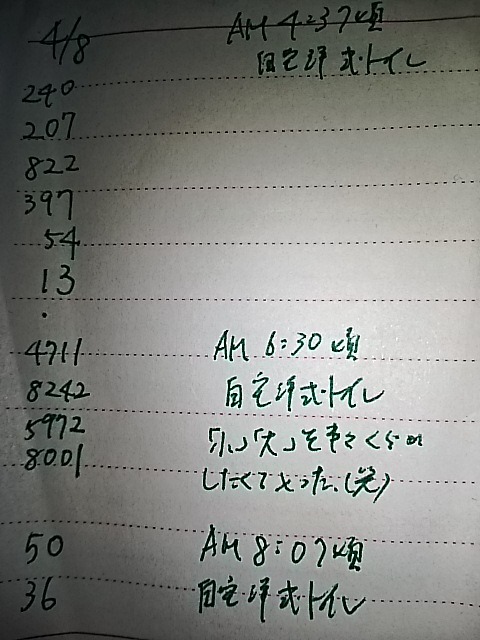 4/8 AM 4:37頃
240 自宅洋式トイレ
207
822
397
54
13
・
4711 AM 6:30頃
8242 自宅洋式トイレ
5972 「小」「大」を
8001 したくてやった。(笑)
50 AM 8:07頃
36 自宅洋式トイレ